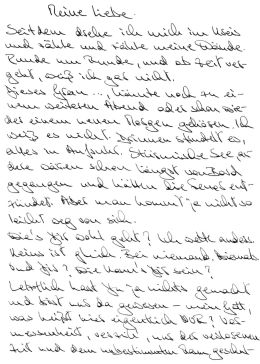 Meine Liebe.
Seitdem drehe ich mich im Kreis
und zähle und zähle meine Wände.
Runde um Runde, und ob Zeit ver-
geht, weiß ich gar nicht.
Dieses Grau..., könnte noch zu ei-
nem weiteren Abend oder schon wie-
der einem neuen Morgen gehören. Ich
weiß es nicht. Drinnen ist
alles in Aufruhr. Stürmische See, an-
dere wären schon längst von Bord
gegangen und hätten die Feuer ent-
zündet. Aber man kommt ja nicht so
leicht weg von sich.
Wie's Dir wohl geht? Ich
Keins ist gleich. Bei niemand. Niemals.
Und Dir? Wie kann's Dir sein?
Letztlich hast Du ja nichts gemacht
und bist nur da gewesen – mein Gott,
was heißt hier eigentlich NUR? Ver-
messenheit, verzeih, nur der verlassenen
Zeit und dem unbestimmten